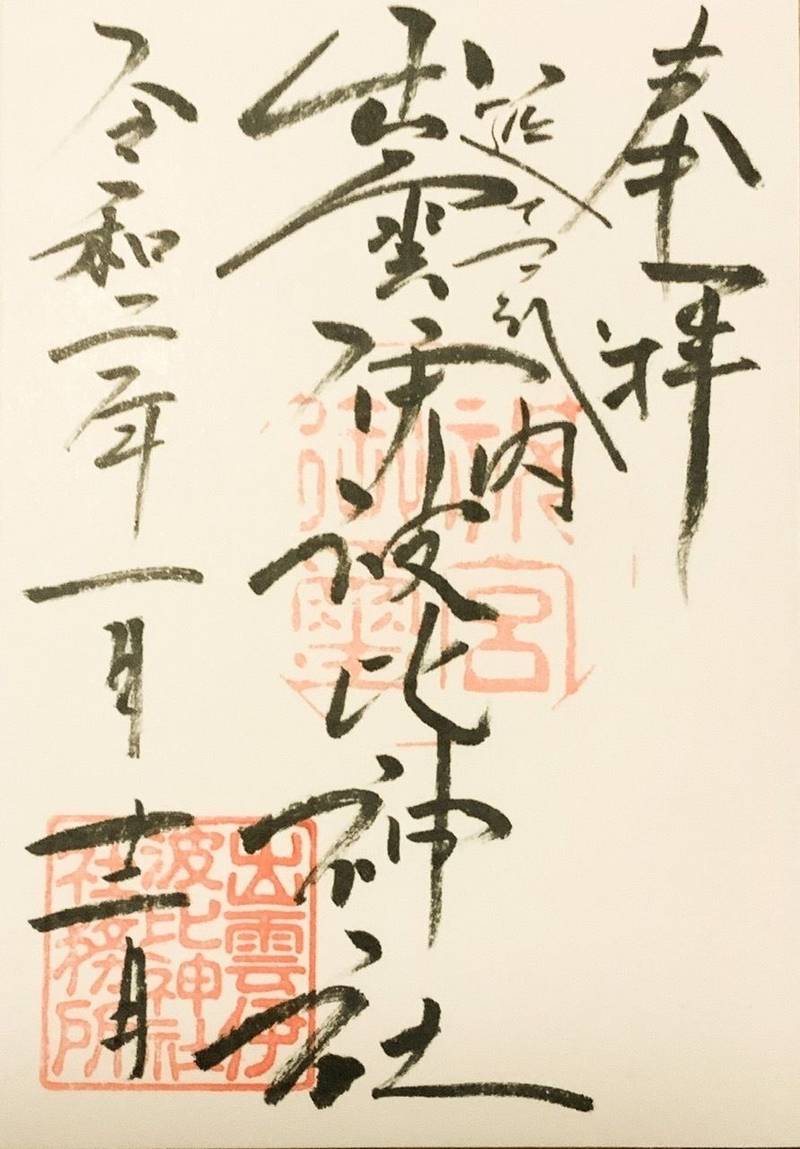 奉拝
延喜式内
出雲伊波比神社
令和二年一月十二日
宮
御璽
出雲伊
波比神社
社務所